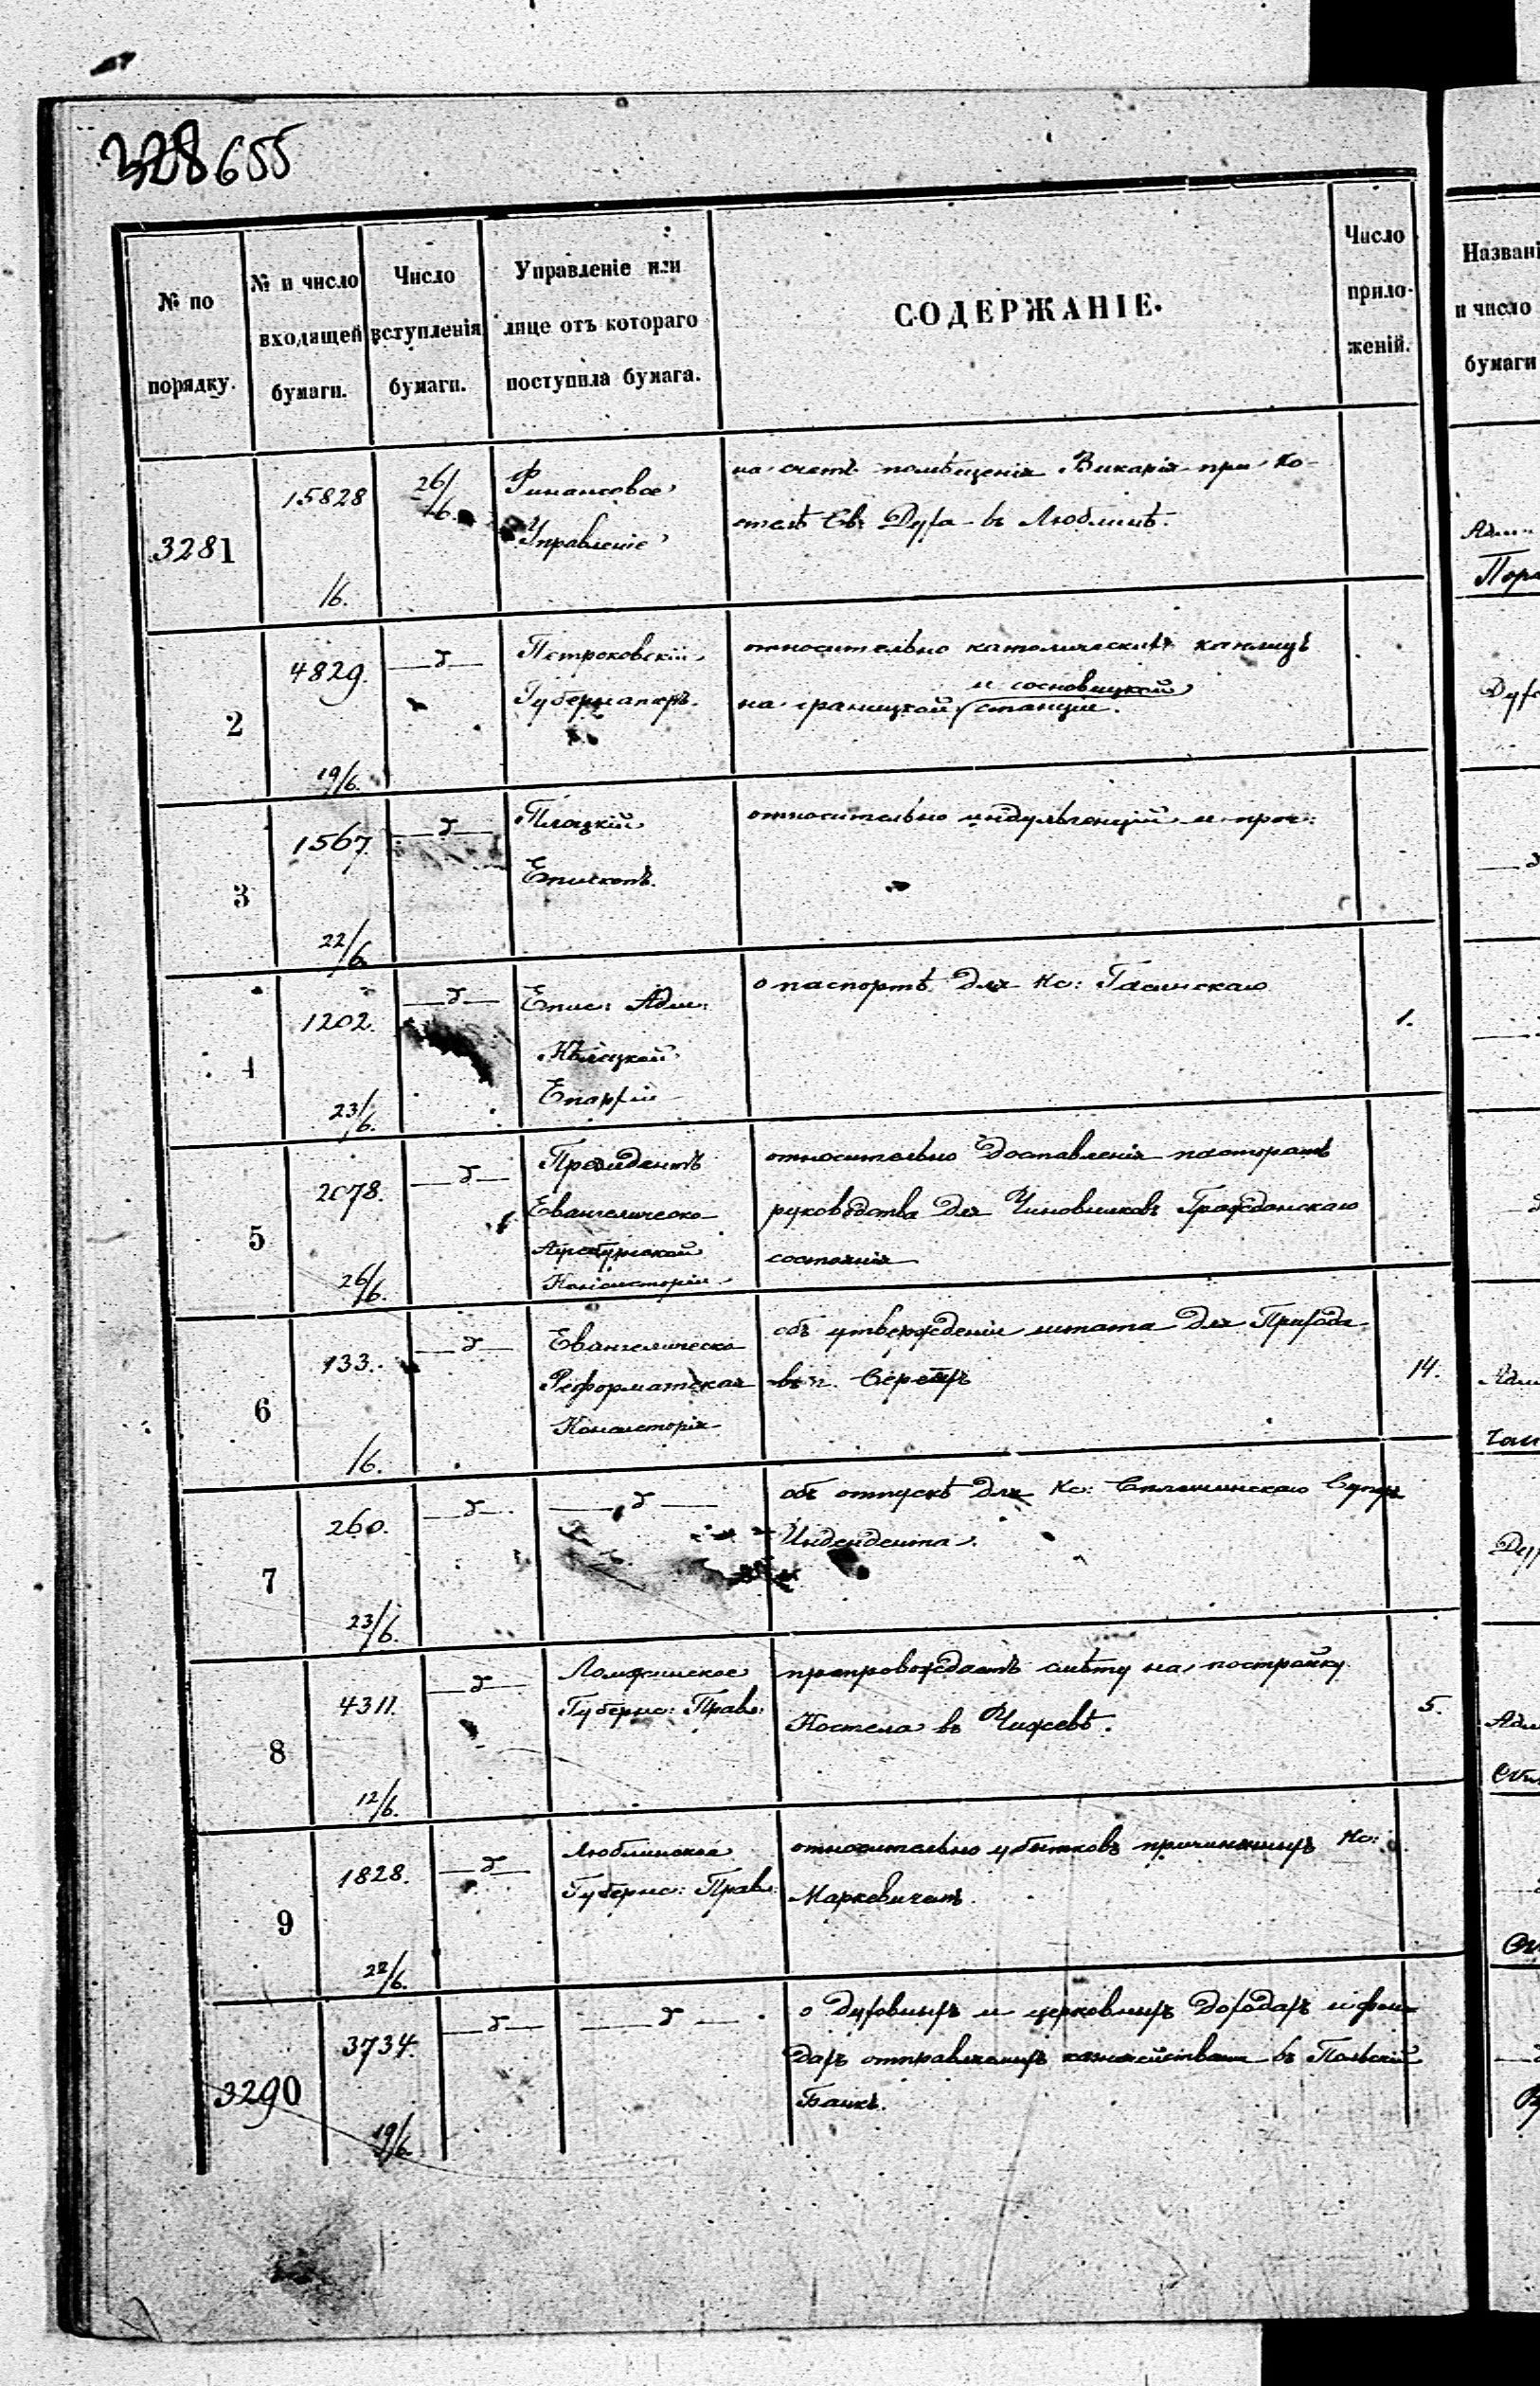 328 655
№ по порядку.
№ и число входящей бумаги.
Число вступленія бумаги.
Управленіе или лице отъ котораго поступила бумага.
СОДЕРЖАНІЕ.
Число приложеній.
3281
15828
16.
26/6.
Финансовое
Управленіе
на счетъ помѣщенія Викарія при Ко-
стелѣ Св. Духа въ Люблинѣ.
2
4829.
19/6.
—д—
Петроковскій
Губернаторъ.
относительно католическихъ каплицъ
и сосновицкой
на границкой станціи.
3
1567.
22/6.
—д—
Плоцкій
Епископъ.
относительно индульгенцій и проч:
4
1202.
23/6.
—д—
Епис: Адм:
Кѣлецкой
Епархіи
о паспортѣ для Кс:
1.
5
2078.
26/6.
—д—
Президентъ
Евангелическо-
Аугсбургской
Консисторіи
относительно доставленія пасторамъ
руководства для Чиновниковъ Гражданскаго
состоянія
6
133.
16.
—д—
Евангелическо
Реформатская
Консисторія
объ утвержденіи штата для Прихода
въ г.
14.
7
260.
23/6.
—д—
—д—
объ отпускѣ для Кс: Супер
Индендента.
8
4311.
12/6.
—д—
Ломжинское
Губернс: Правл:
препровождаетъ смѣту на постройку
Костела въ Чижевѣ.
5.
9
1828.
22/6.
—д—
Люблинское
Губернс: Правл:
относительно убытковъ причиненныхъ Кс:
Маркевичемъ.
3290
3734.
19/6.
—д—
—д—
о духовныхъ и церковныхъ доходахъ и фон-
дахъ отправляемыхъ казначействами въ Польскій
Банкъ.